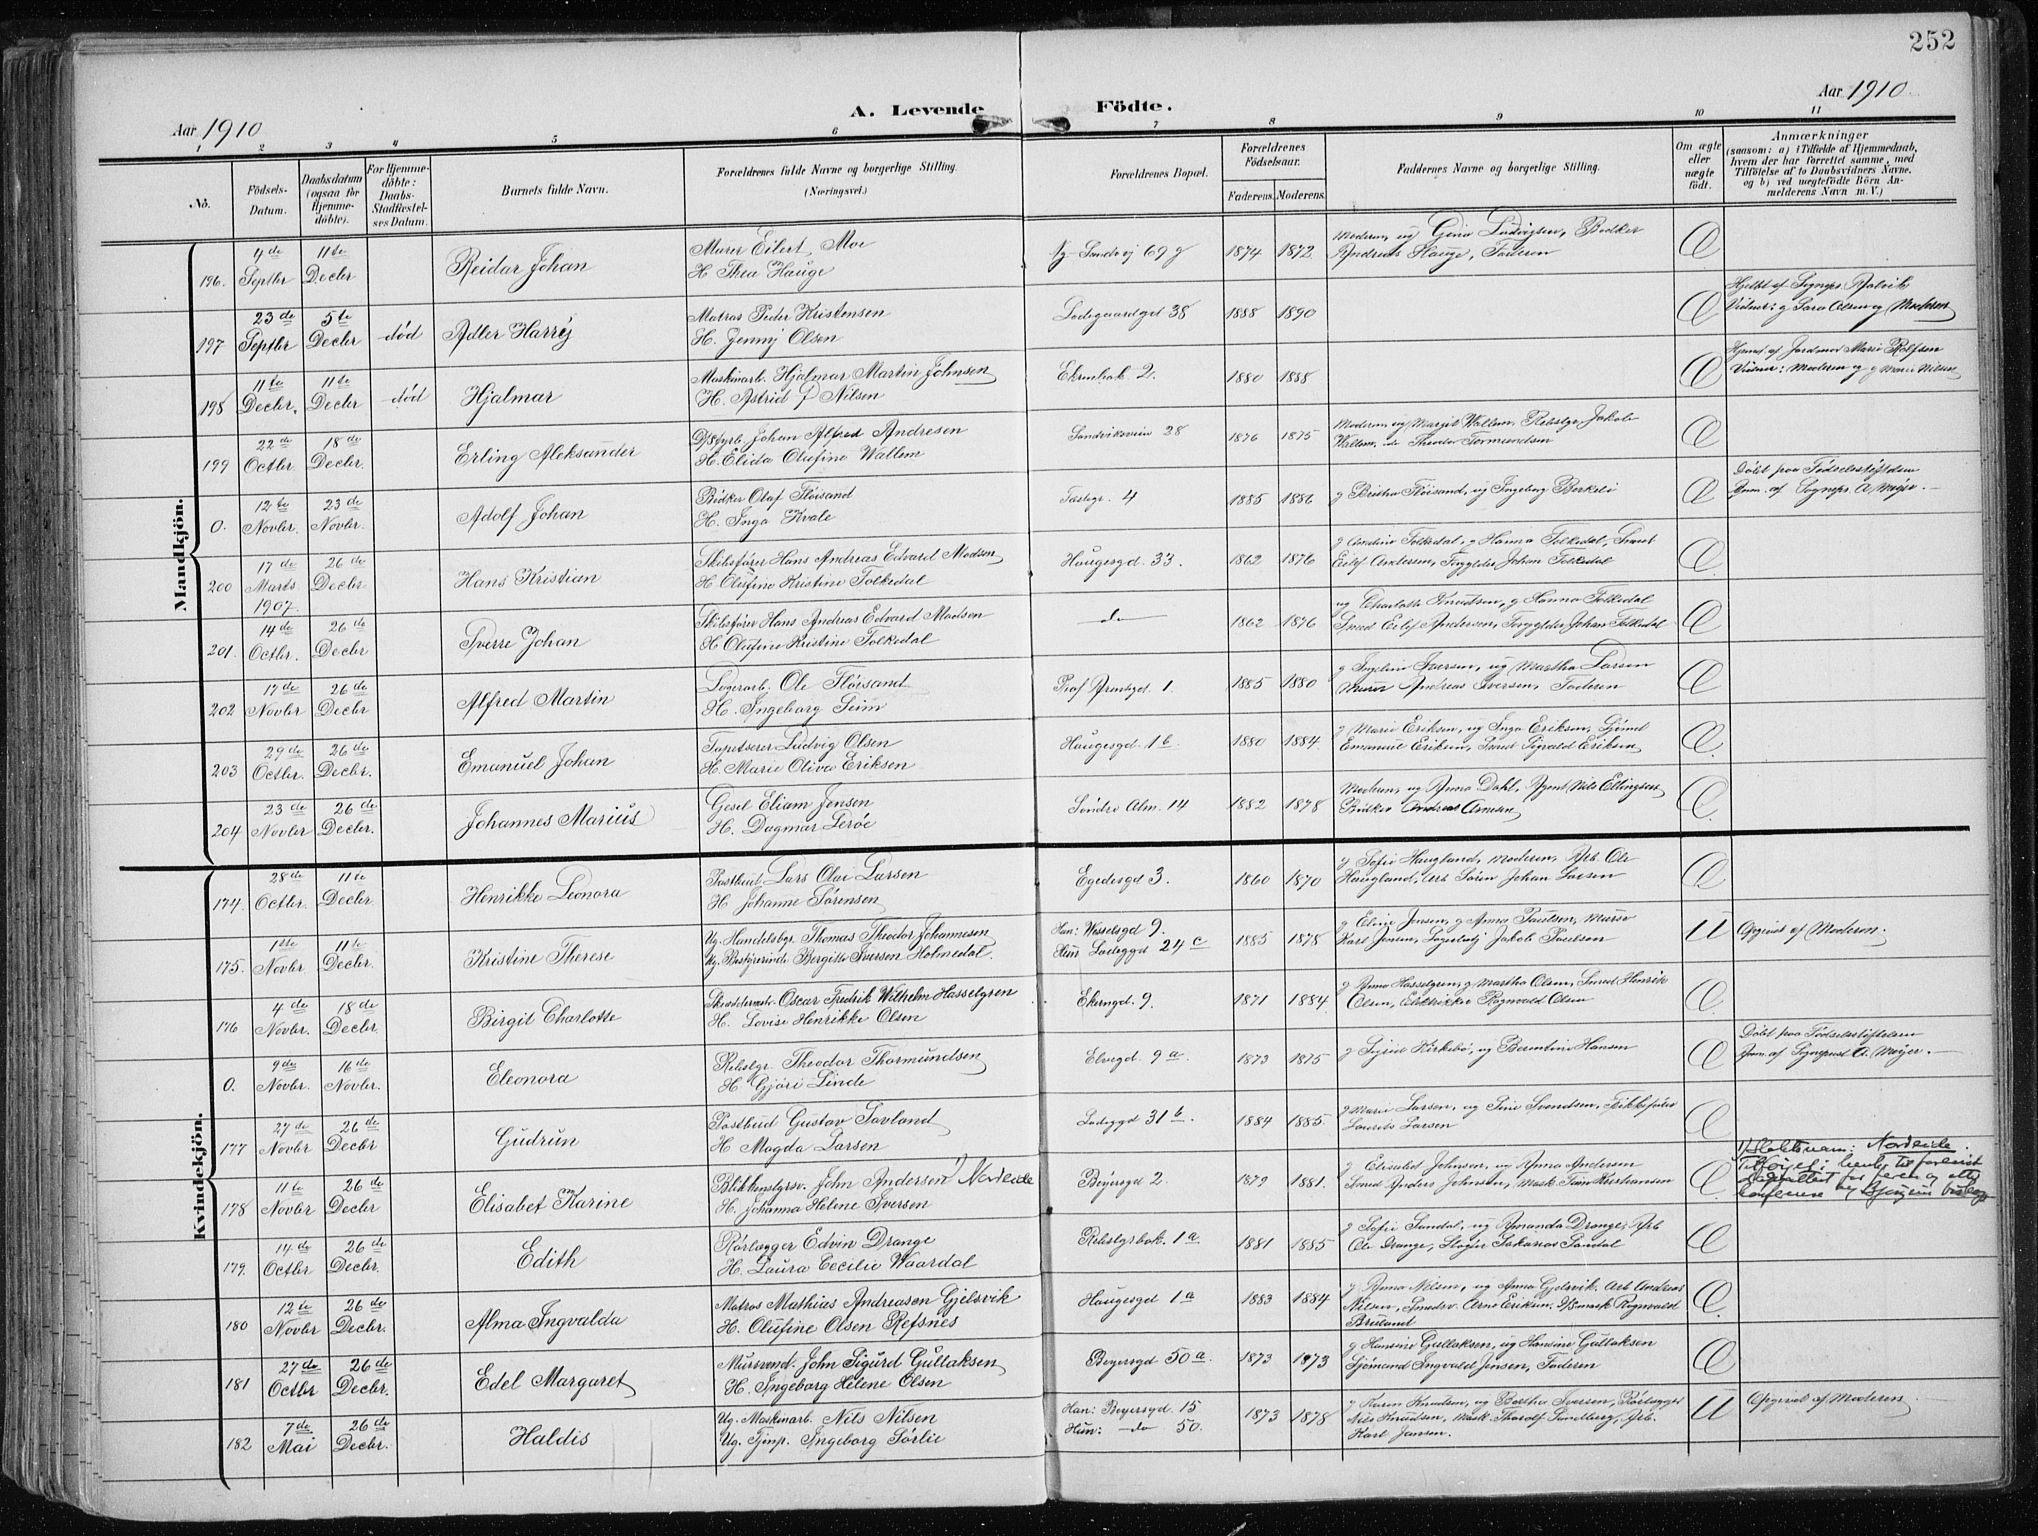 252
Aar 1910
A. Levende Födte.
Aar 1910
1 2 3 4 5 6 7 8 9 10 11
No.
Födsels-Datum.
Daabsdatum (ogsaa for Hjemme-döbte).
For Hjemme-döbte: Daabs-Stadfæstel-ses Datum.
Barnets fulde Navn.
Forældrenes fulde Navne og borgerlige Stilling. (Næringsvei.)
Forældrenes Bopæl.
Forældrenes Födselsaar.
Faderens. Moderens.
Faddernes Navne og borgerlige Stilling.
Om ægte eller uægte födt.
Anmærkninger
(saasom: a) i Tilfælde af Hjemmedaab, hvem der har forrettet samme, med Tilföielse af to Daabsvidners Navne, og b) ved uægtefödte Börn Anmelderens Navn m. V.)
Mandkjön.
196. 4de Septbr 11te Decbr Reidar Johan
Murer Eilert Moe
H Thea Hauge
Ny Sandvj 69 g 1874 1872
Moderen, ug Gina Ludvigsen, Bødker
Andreas Hauge, Faderen
197 23de Septbr 5te Decbr død Adler Harry
Matros Peder Kristensen
H. Jenny Olsen
Ladegaardgd 38 1888 1890
198 11te Decbr. 11te Decbr død Hjalmar
Maskinarb. Hjalmar Martin Johnsen
H. Astrid Nilsen
Ekrenbak 2. 1880 1888
Hjmd. af Jordmor Marie Rolfsen
Vidner: Moderen og g Marie Nilsen
199 22de Octbr 18de Decbr. Erling Aleksander
Johan Alfred Andresen
H. Elida Olufine Wallem
Sandviksveie 28 1876 1875
Moderen, ug Margit Wallem, Rebslgr Jakob
Wallem, do Theodor Tormundsen
0. 12te Novbr. 23de Novbr. Adolf Johan
Bødker Olaf Fløisand
H. Inga Kvale
4 1885 1886
g Britha Fløisand, ug Ingeborg Berkeli
Døbt paa Fødselsstiftelsen
Anm. af Sognepr. A Meyer.
200 17de Marts 1907. 26de Decbr Hans Kristian
Skibsfører Hans Andreas Edvard Madsen
H Olufine Kristine Folkedal
Haugesgd. 33. 1862 1876
g Andrine Folkedal, g Hanna Folkedal, Smed
Eilef Andersen, Forgylder Johan Folkedal
201. 14de Octbr. 26de Decbr Sverre Johan
Skibsfører Hans Andreas Edvard Madsen
H Olufine Kristine Folkedal
do 1862 1876
ug Charlotte Knudsen, g Hanna Folkedal
Smed Eilef Andersen, Forgylder Johan Folkedal
202 17de Novbr 26de Decbr. Alfred Martin
Lagerarb. Ole Fløisand
H. Ingeborg Seim
Prof Arentzgd. 1. 1885 1880
g Ingeline Iversen, ug Martha Larsen
Murer Andreas Iversen, Faderen
203 29de Octbr. 26de Decbr. Emanuel Johan
Tapetserer Ludvig Olsen
H. Marie Oliva Eriksen
Haugesgd 1b. 1880 1884.
g Marie Eriksen, ug Inga Eriksen, Sjømd
Emanuel Eriksen, Smed Sigvald Eriksen
204 23de Novbr 26de Decbr. Johannes Marius
Gesel Eliam Jensen
H. Dagmar Lerøe
Søndre Alm. 14 1882 1878
Moderen, ug Anna Dahl, Agent Nils Ellingsen
Bødker Andreas Arnesen
Kvindekjön.
174. 28de Octbr. 11te Decbr. Henrikke Leonora
Postbud Lars Olai Larsen
H Johanne Sørensen
Egedesgd 3. 1860 1870
g Sofie Haugland, Moderen, Arb. Ole
Haugland, Arb Søren Johan Larsen
175. 1ste Novbr. 11te Decbr. Kristine Therese
Ug. Handelsbgr. Thomas Theodor Johannesen
Ug. Bestyrerinde Bergitte Iversen Holmedal.
Han: Wesselsgd 9.
Hun Ladeggd 24 c 1885 1878
g Eline Jensen, g Anna Paulsen, Murer
Karl Jensen, Jakob Paulsen
U Opgivet af Moderen.
176 4de Novbr. 18de Decbr. Birgit Charlotte
Skræddermstr. Oscar Fredrik Wilhelm Hasselgren
H. Lovise Henrikke Olsen
Ekrengd. 9. 1871 1884.
g Anna Hasselgren, g Martha Olsen, Smed Henrik
Olsen, Elektriker Ragnvald Olsen
0. 9de Novbr. 16de Novbr. Eleonora
Rebslgr. Theodor Thormundsen
H Gjøri Linde
Elvegd 9 a. 1873 1875
g Sigrid Kirkebø, ug Berntine Hansen
Døbt paa Fødselsstiftelsen
Anm. af Sogneprest A. Meyer.
177 27de Novbr 26de Decbr Gudrun
Postbud Gustav Tavland
H Magda Larsen
Ladeggd 31 b. 1884 1885.
g Marie Larsen, ug Sine Svendsen,
Laurits Larsen
178 11te Novbr 26de Decbr. Elisabet Karine
Blikkenslgrsv. John Andersen 1) Nordeide
H. Johanna Helene Iversen
Beyersgd 2 1879 1881.
g Elisabet Johnsen, ug Anna Andersen
Smed Anders Johnsen, Mask. Kristiansen
1) Slektsnavn: Nordeide.
179. 14de Octbr 26de Decbr. Edith
Rørlægger Edvin Drange
H. Laura Cecilie Waardal
Rebslgrbak. 1a 1881 1885
g Sofie Sandal, ug Amanda Drange, Arb
Ole Drange, Sakarias Sandal
180 12te Novbr 26de Decbr. Alma Ingvalda
Matros Mathias Andreasen Gjelsvik
H. Olufine Olsen Refsnes
Haugesgd 1a 1883 1884
g Anna Nilsen, ug Anna Gjelsvik. Arb Andreas
Nilsen, Smedsv. Arne Eriksen, Ragnvald
Breiland
181 27de Octbr 26de Decbr. Edel Margaret
Mursvend. John Sigurd Gullaksen
H. Ingeborg Helene Olsen
Beyersgd 50 a. 1873 1873
g Hansine Gullaksen, ug Hansine Gullaksen
Sjømand Ingvald Jensen, Faderen
182 7de Mai 26de Decbr. Haldis
Ug. Maskinarb. Nils Nilsen
Ug. Tjmp. Ingeborg Sørlie
Han: Beyersgd 15
Hun: do 50. 1873 1878
g Karen Knudsen, ug Bertha Iversen, Rørlægger
Nils Knudsen, Mask. Thorolf Sundberg, Arb.
Karl Jansen.
U Opgivet af Moderen